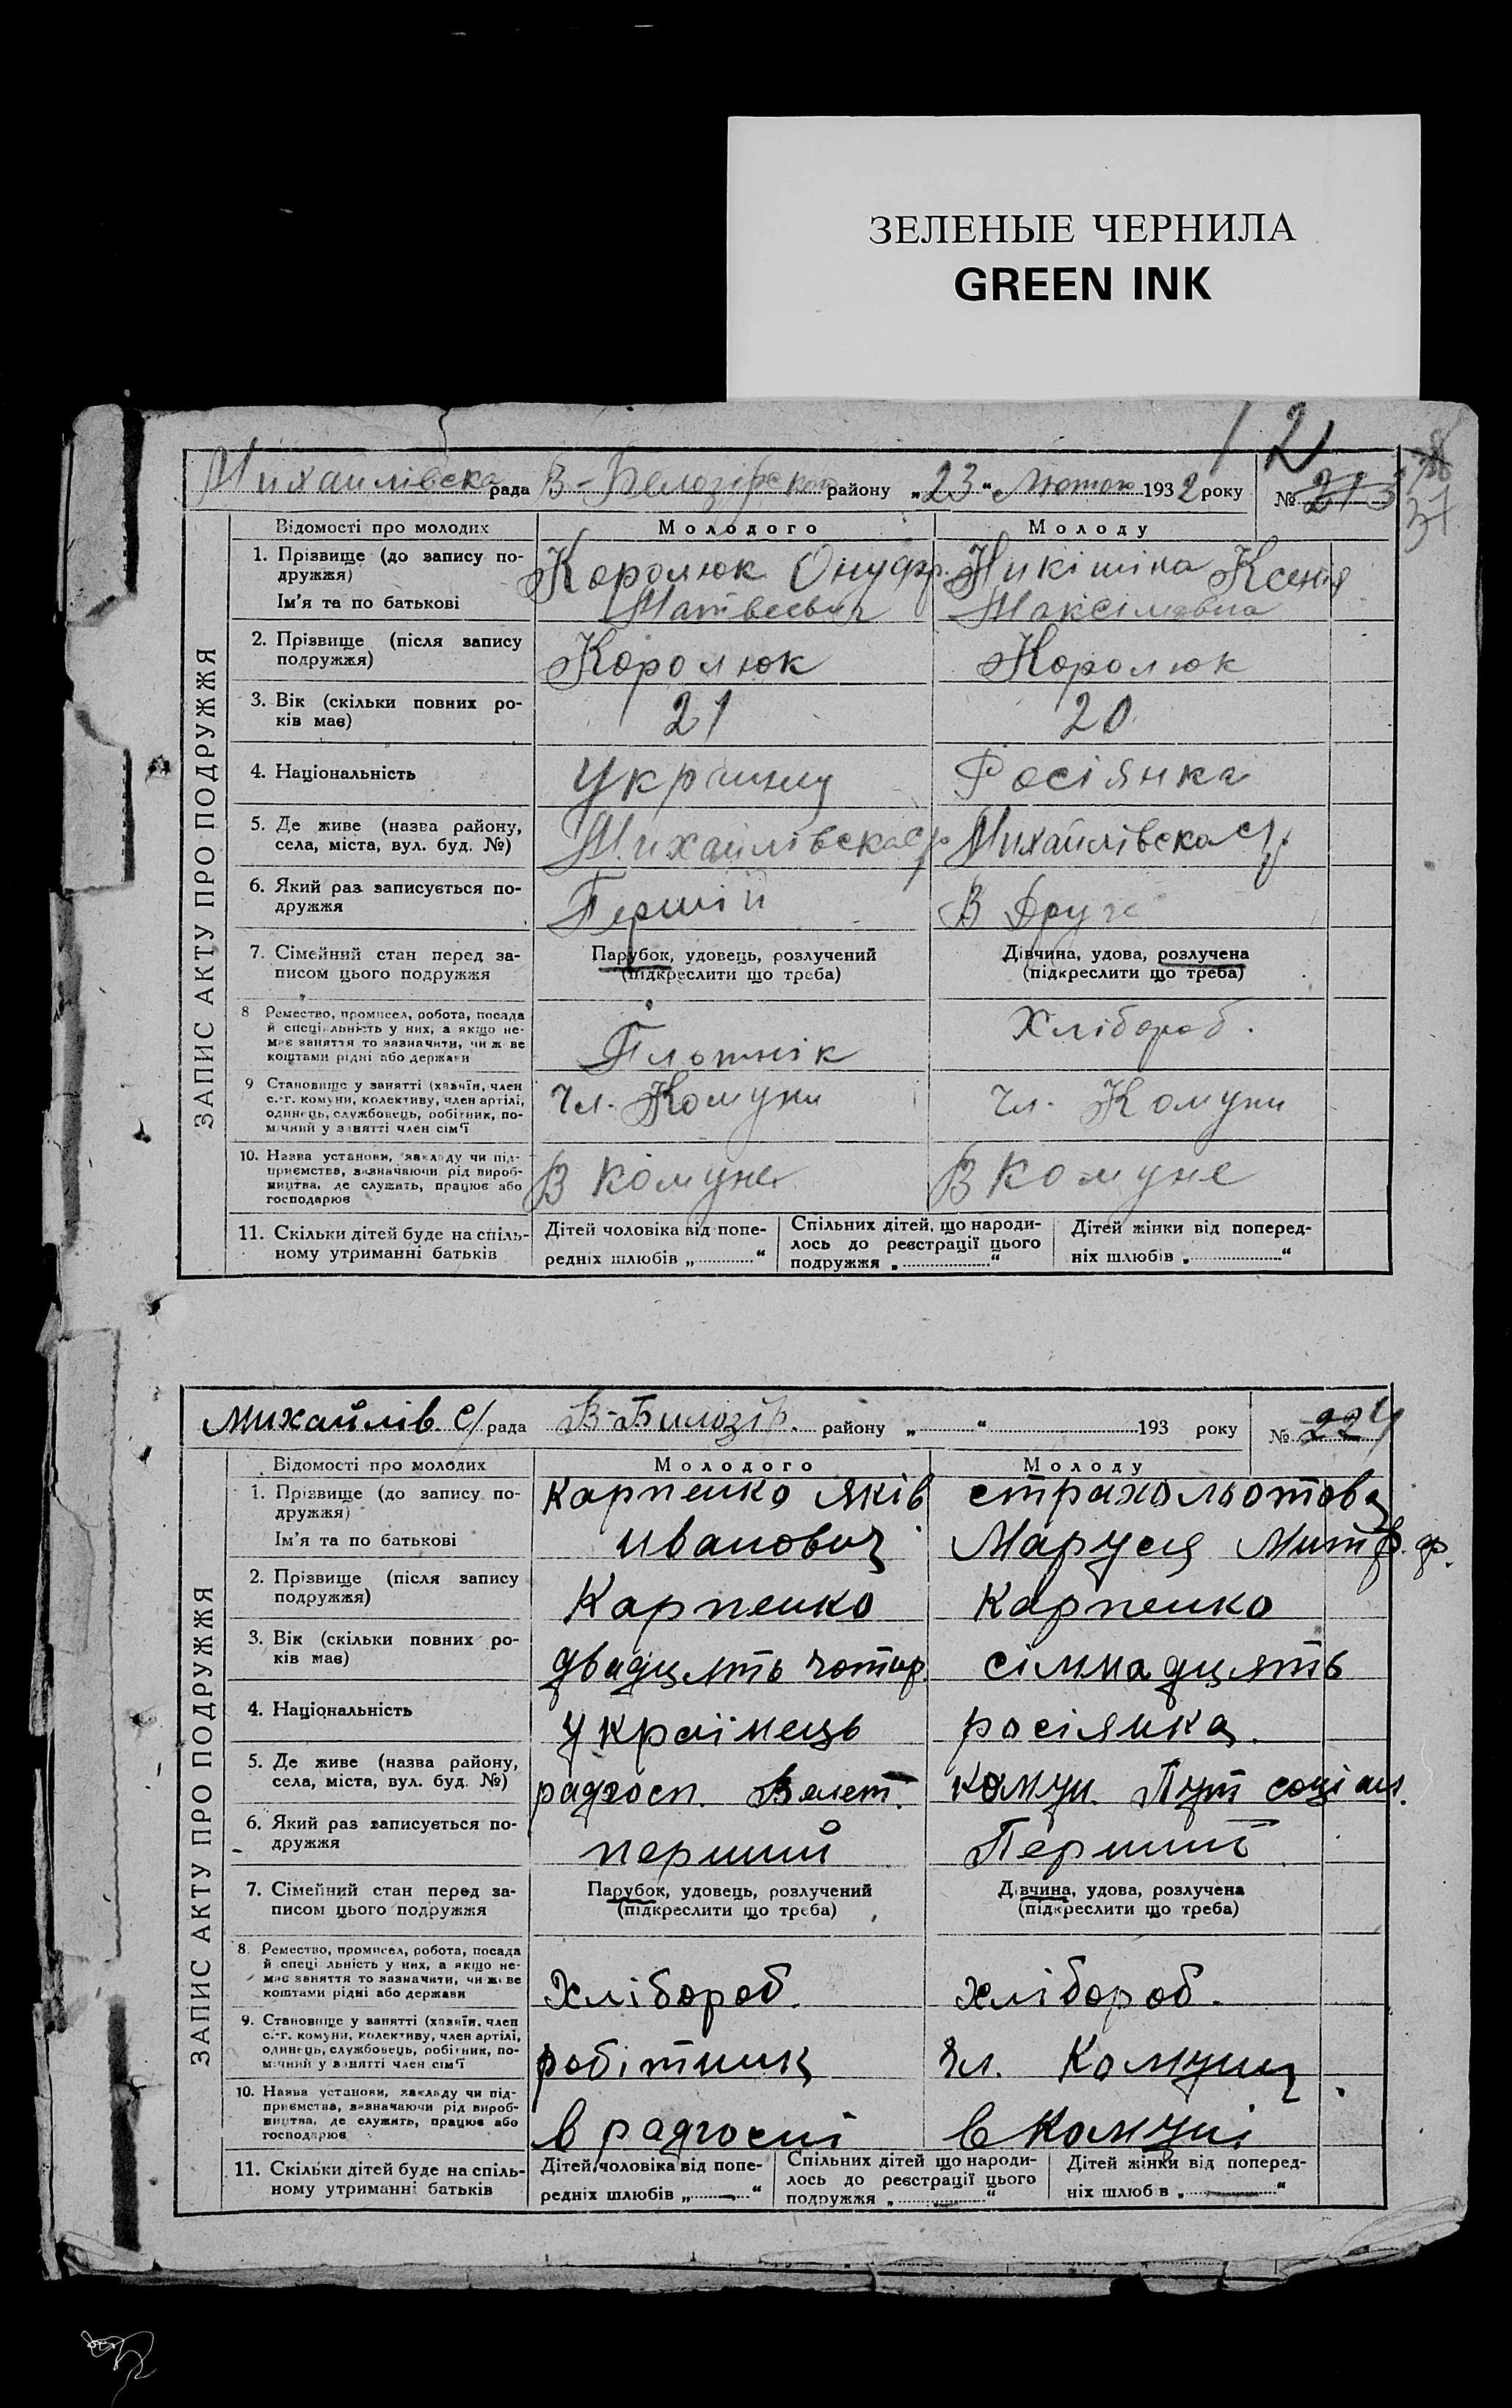 ЗЕЛЕНЫЕ ЧЕРНИЛА
GREEN INK
12
Михайлівска рада В-Белозірского району „23“ Лютого 1932 року № 213
37
ЗАПИС АКТУ ПРО ПОДРУЖЖЯ
Відомості про молодих Молодого Молоду
1. Прізвище (до запису по-
дружжя) Королюк Онуфр. Нікітіна Ксенія
Ім'я та по батькові Матвеевич Максімовна
2. Прізвище (після запису
подружжя) Королюк Королюк
3. Вік (скільки повних ро-
ків має) 21 20
4. Національність Росіянка
5. Де живе (назва району,
села, міста, вул. буд. №) Михайлівска с/р Михайлівска с/р
6. Який раз записується по-
дружжя Першій В Друге
7. Сімейний стан перед за- Парубок, удовець, розлучений Дівчина, удова, розлучена
писом цього подружжя (підкреслити що треба) (підкреслити що треба)
8 Ремество, промисел, робота, посада
й спеціальність у них, а якщо не-
має заняття то зазначити, чи живе
коштами рідні або держави Плотнік Хлібороб.
9 Становище у занятті (хазяїн, член
с.-г. комуни, колективу, член артілі,
одинець, службовець, робітник, по-
мічний у занятті член сім'ї Чл. Комуни Чл. Комуни
10. Назва установи, закладу чи під-
приємства, визначаючи рід вироб-
ництва, де служить, працює або
господарює В комуне В комуне
11. Скільки дітей буде на спіль- Дітей чоловіка від попе- Спільних дітей, що народи- Дітей жінки від поперед-
ному утриманні батьків редніх шлюбів „ “ лось до реєстрації цього ніх шлюбів „ “
подружжя „ “
Михайлів с/рада В-Билозір. району „ “ 193 року № 224
ЗАПИС АКТУ ПРО ПОДРУЖЖЯ
Відомості про молодих Молодого Молоду
1. Прізвище (до запису по-
дружжя) Карпенко Яків страхольотова
Ім'я та по батькові иванович Маруся Митроф.
2. Прізвище (після запису
подружжя) Карпенко Карпенко
3. Вік (скільки повних ро-
ків має) двадцять чотир. сімнадцять
4. Національність українець росіянка.
5. Де живе (назва району,
села, міста, вул. буд. №) радгосп. Велет. комун. Пут соціал.
6. Який раз записується по-
дружжя перший Перший
7. Сімейний стан перед за- Парубок, удовець, розлучений Дівчина, удова, розлучена
писом цього подружжя (підкреслити що треба) (підкреслити що треба)
8. Ремество, промисел, робота, посада
й спеціальність у них, а якщо не-
має заняття то зазначити, чи живе
коштами рідні або держави Хлібороб. хлібороб.
9. Становище у занятті (хазяїн, член
с.-г. комуни, колективу, член артілі,
одинець, службовець, робітник, по-
мічний у занятті член сім'ї робітник чл. Комуни
10. Назва установи, закладу чи під-
приємства, визначаючи рід вироб-
ництва, де служить, працює або
господарює в радгоспі в Комуні
11. Скільки дітей буде на спіль- Дітей чоловіка від попе- Спільних дітей що народи- Дітей жінки від поперед-
ному утриманні батьків редніх шлюбів „—“ лось до реєстрації цього ніх шлюбів „—“
подружжя „—“